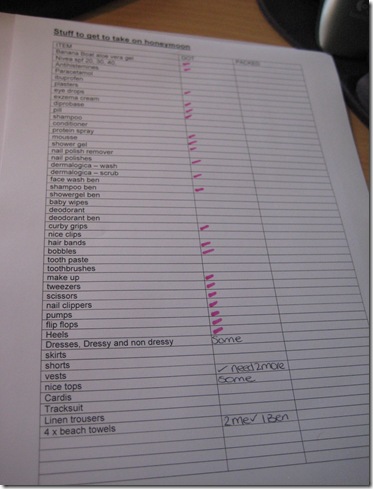 Stuff to get to take on honeymoon
ITEM GOT PACKED
Banana Boat aloe vera gel
Nivea spf 20, 30, 40
Antihistamines
Paracetamol
Ibuprofen
plasters
eye drops
exzema cream
diprobase
pill
shampoo
conditioner
protein spray
mousse
shower gel
nail polish remover
nail polishes
dermalogica – wash
dermalogica – scrub
face wash ben
shampoo ben
showergel ben
baby wipes
deodorant
deodorant ben
curby grips
nice clips
hair bands
bobbles
tooth paste
toothbrushes
make up
tweezers
scissors
nail clippers
pumps
flip flops
Heels
Dresses, Dressy and non dressy Some
skirts
shorts
vests ✓ need 2 more
nice tops Some
Cardis
Tracksuit
Linen trousers 2 me ✓ 1 Ben
4 x beach towels